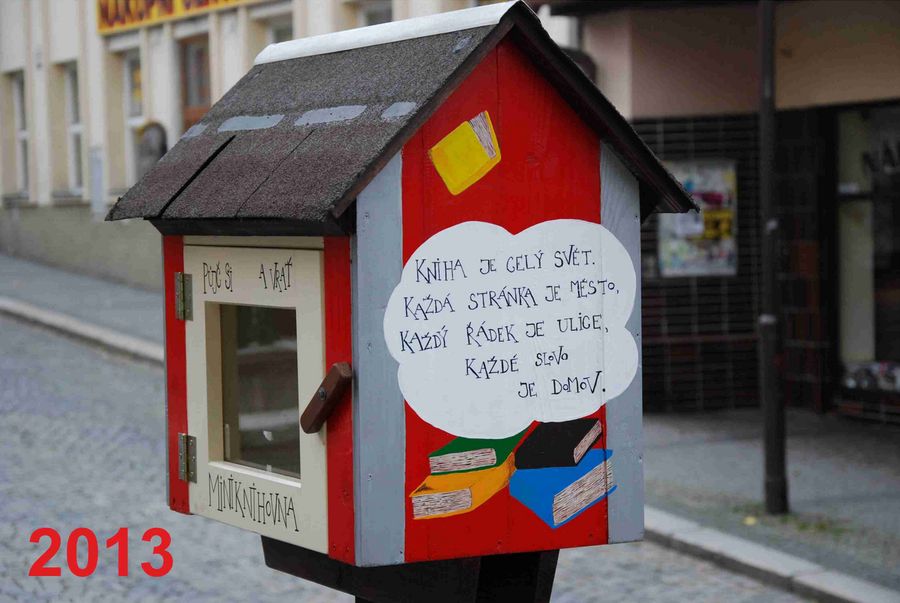 PŮJČ SI A VRAŤ
MINIKNIHOVNA
KNIHA JE CELÝ SVĚT.
KAŽDÁ STRÁNKA JE MĚSTO,
KAŽDÝ ŘÁDEK JE ULICE,
KAŽDÉ SLOVO
JE DOMOV.
2013